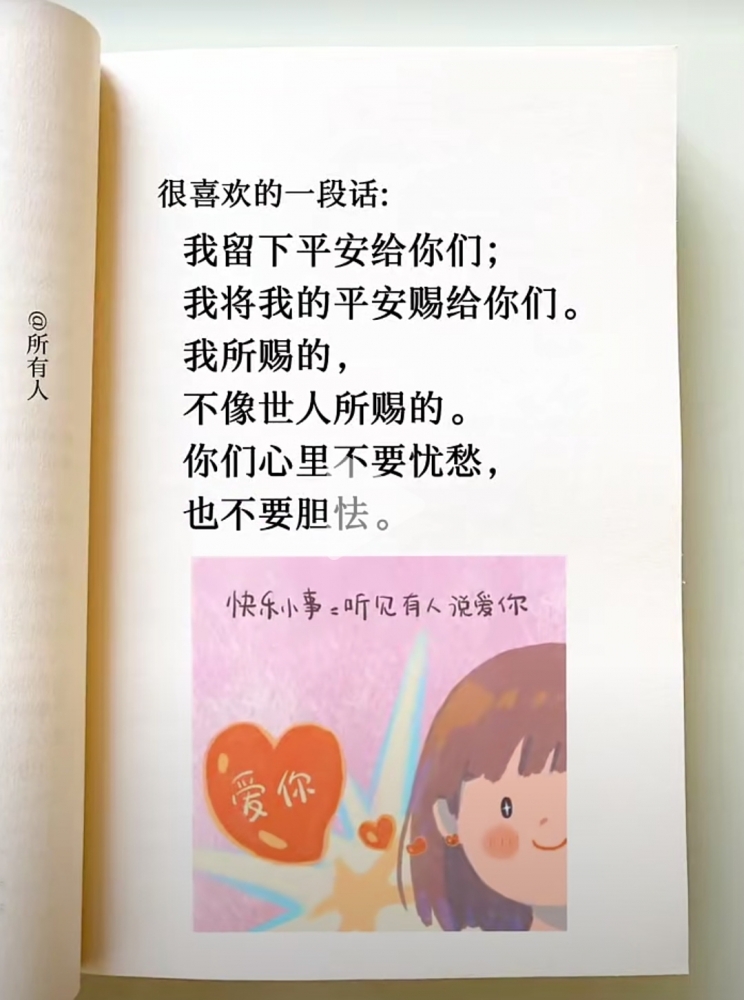 @所有人
很喜欢的一段话:
我留下平安给你们；
我将我的平安赐给你们。
我所赐的，
不像世人所赐的。
你们心里不要忧愁，
也不要胆怯。
快乐小事=听见有人说爱你
爱你